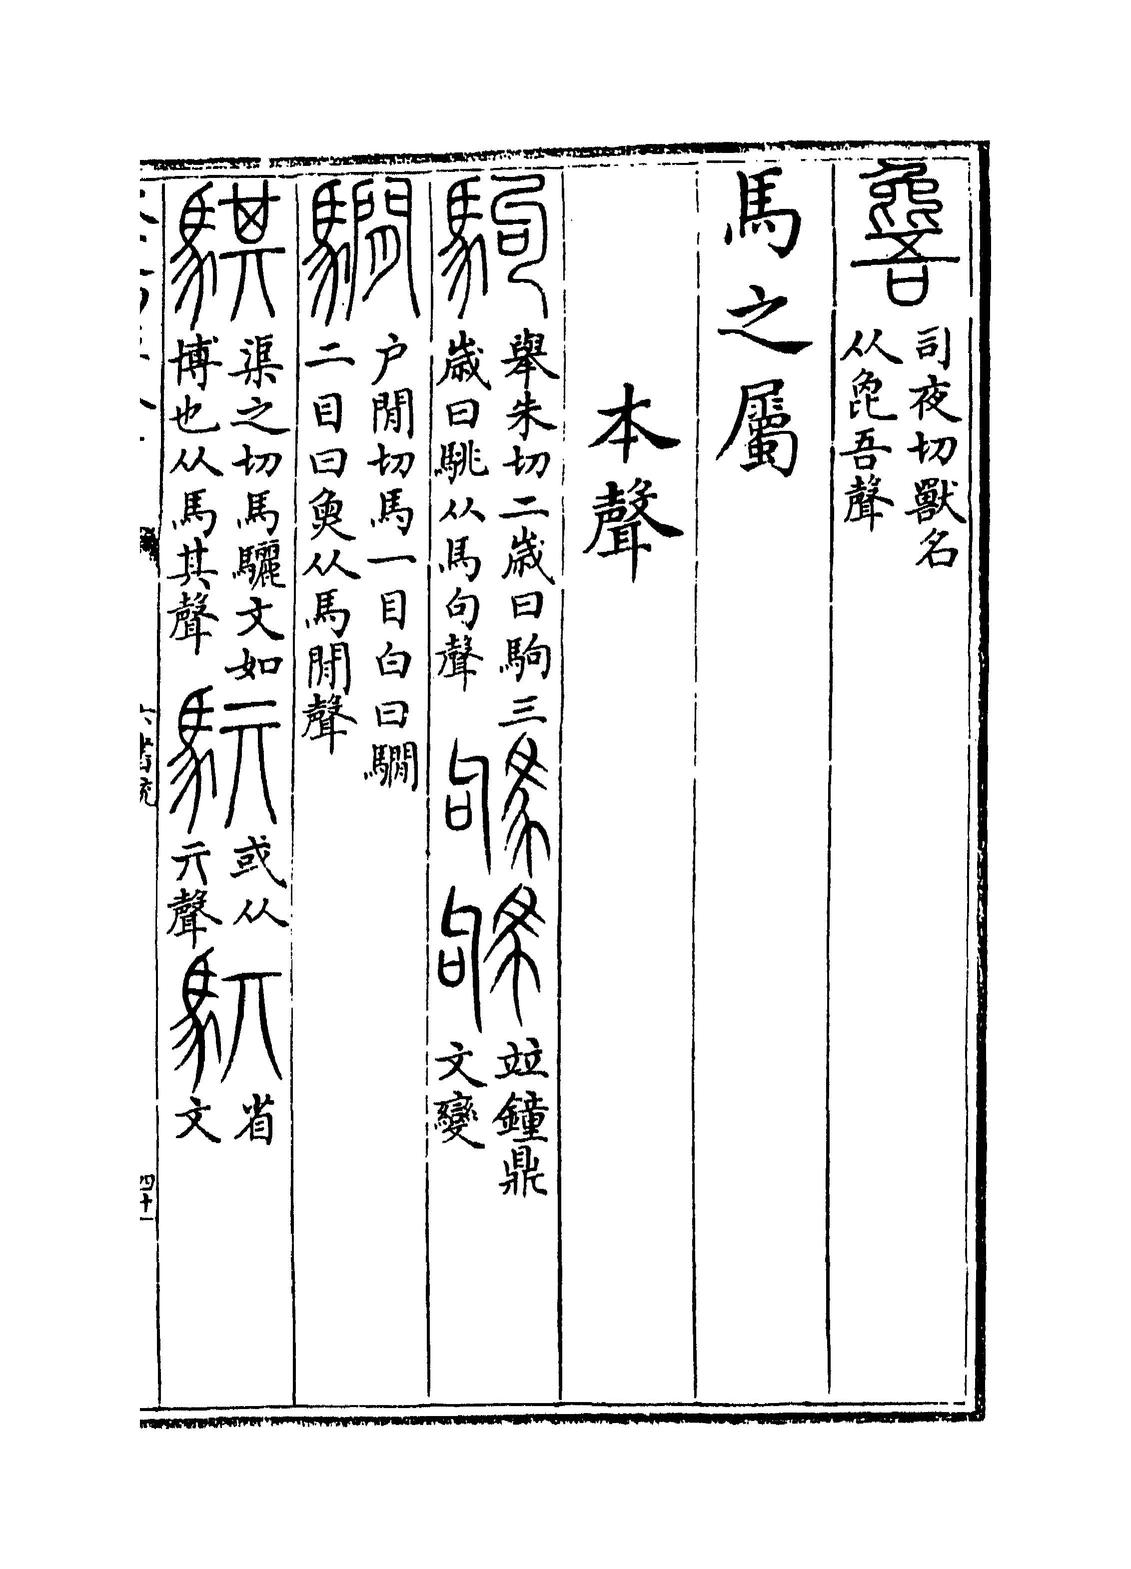 司夜切獸名
从㲋吾聲
馬之屬
本聲
駒
舉朱切二歲曰駒三
歲曰駣从馬句聲
竝鐘鼎
文變
騆
户閒切馬一目白曰騆
二目曰魚从馬閒聲
騏
渠之切馬驪文如
博也从馬其聲
或从
亓聲
省
文
六書統
四十一